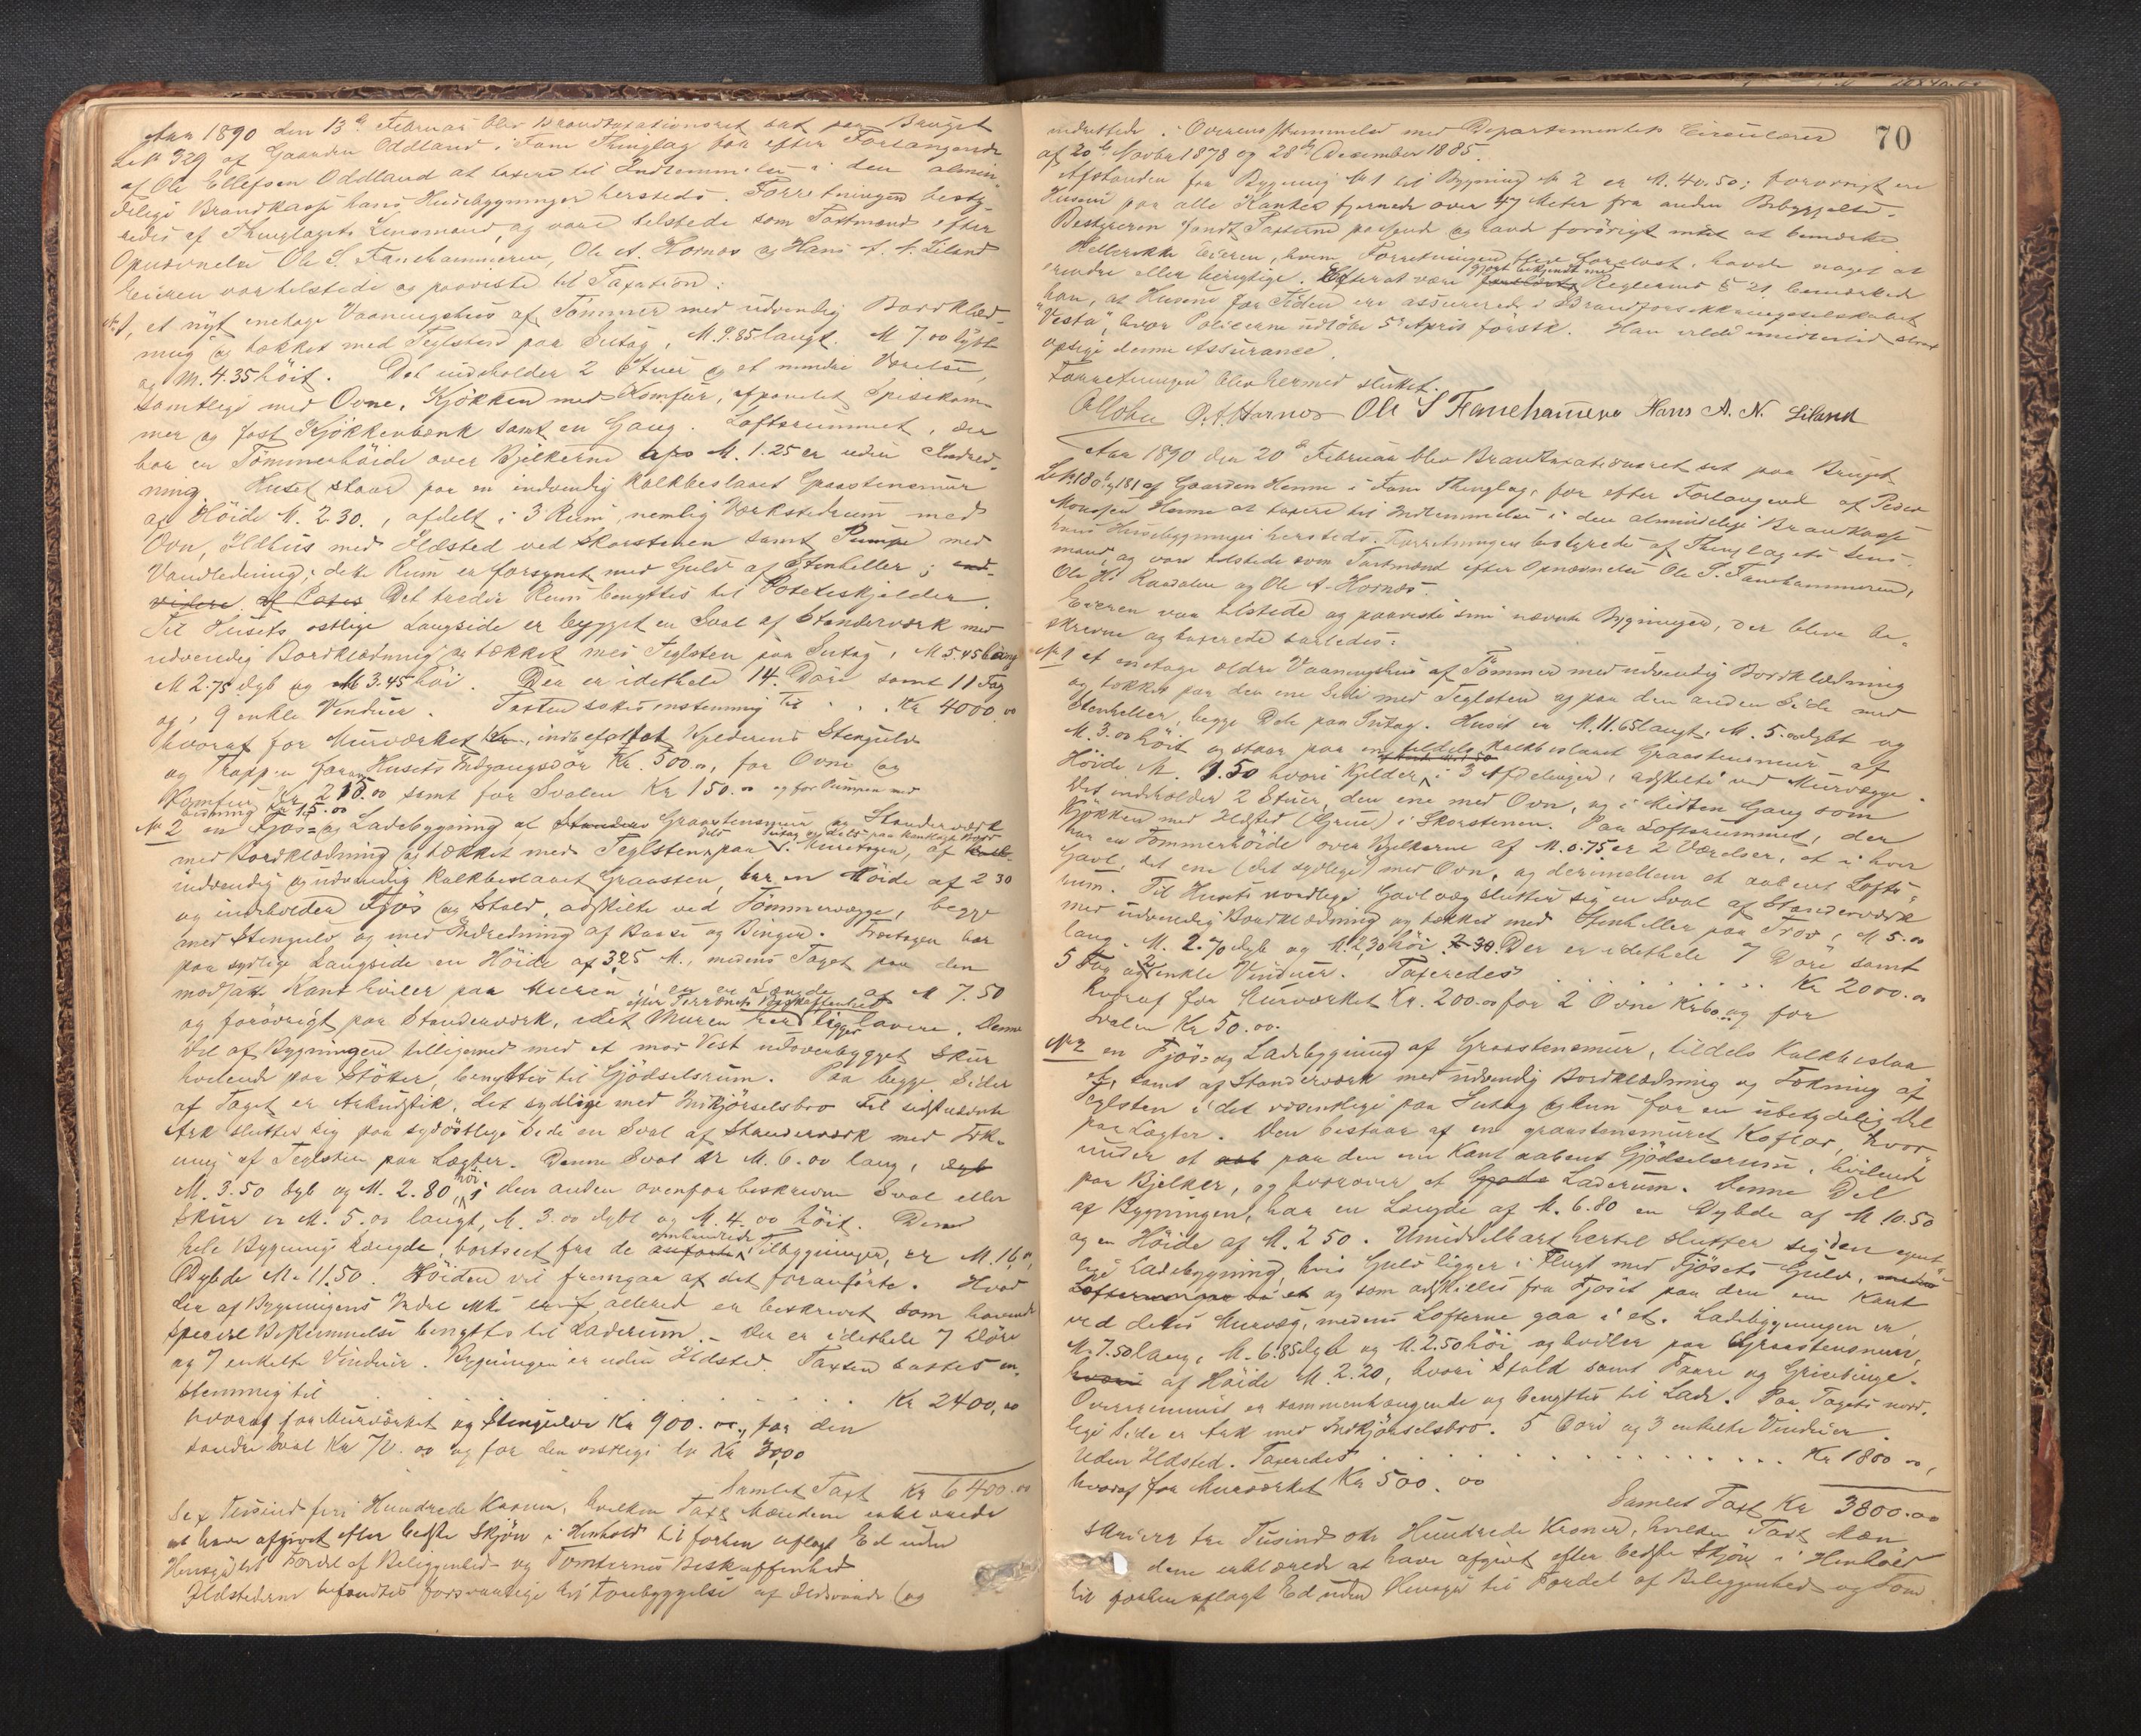 Aar 1890 den 13de Februar blev Brandtaxationsret sat paa Bruget
LNo 329 af Gaarden Oddland i Fane Thinglag for efter Forlangende
af Ole Ellefsen Oddland at taxere til Indlemmelse i den almin-
delige Brandkasse hans Husebygninger hersteds. Forretningen besty-
redes af Thinglagets Lensmand, og vare tilstede som Taxtmænd efter
Opnævnelse Ole S. Fanehammeren, Ole A. Hornæs og Hans A. N. Liland
Eieren var tilstede og paaviste til Taxation:
No 1, et nyt enetage Vaaningshus af Tømmer med udvendig Bordklæd-
ning og tækket med Teglsten paa Sutag, M. 9.85 langt. M 7.00 dybt
og M. 4.35 høit. Det indeholder 2 Stuer og et mindre Værelse,
samtlige med Ovne, Kjøkken med Komfur, afpanelet Spisekam-
mer og fast Kjøkkenbænk samt en Gang. Loftsrummet, der
har en Tømmerhøide over Bjelkerne af M. 1.25 er uden Indred-
ning. Huset staar paa en indvendig kalkbeslaaet Graastensmur
af Høide M. 2.30., afdelt i 3 Rum, nemlig Værkstedrum med
Ovn, Ildhus med Ildsted ved Skorstenen samt Pumpe med
Vandledning; dette Rum er forsynet med Gulv af Stenheller; end-
videre af Potes Det tredie Rum benyttes til Poteteskjelder.
Til Husets østlige Langside er bygget en Sval af Standerværk med
udvendig Bordklædning og tækket med Teglsten paa Sutag, M 5.45 lang
M 2.75 dyb og M 3.45 høi. Der er idethele 14 Døre samt 11 Fag
og 9 enkle Vinduer. Taxten sattes enstemmig til . . . Kr 4000.00
hvoraf for Murværket Kr., indbefattet Kjelderens Stengulv
og Trappen foran Husets Indgangsdør Kr. 500.00, for Ovne og
Komfur Kr 215.00 samt for Svalen Kr 150.00 og for Pumpen med
Ledning Kr 15.00
No 2 en Fjøs- og Ladebygning af Standerv Graastensmur og Standerværk
med Bordklædning og tækket med Teglsten, dels paa Sutag og dels paa
indvendig og udvendig kalkbeslaaet Graasten, har en Høide af 2.30
og indeholder Fjøs og Stald, adskilte ved Tømmervægge, begge
med Stengulv og med Indredning af Baase og Binger. Fæetagen har
paa sydlige Langside en Høide af 3.25 M., medens Taget paa den
modsatte Kant hviler paa Muren i en Længde af M 7.50
efter Terrænets Beskaffenhed
og forøvrigt paa Standerværk, idet Muren her ligger lavere. Denne
Del af Bygningen tilligemed med et mod Vest udovenbygget Skur
hvilende paa Støtter, benyttes til Gjødselsrum. Paa begge Sider
af Taget er Ark, det sydlige med Indkjørselsbro. Til sidstnævnte
Ark slutter sig paa sydøstlige Side en Sval af Standerværk med Tæk-
ning af Teglsten paa Lægter. Denne Sval er M. 6.00 lang, dyb
M. 3.50 dyb og M. 2.80 høi, den anden ovenfor beskrevne Sval eller
Skur er M. 5.00 langt, M. 3.00 dybt og M. 4.00 høit. Den
hele Bygnings Længde, bortseet fra de anførte omhandlede Tilbygninger, er M. 16.00,
Dybde M. 11.50. Høiden vil fremgaa af det foranførte. Hvad
der af Bygningens Indre ikke er allerede er beskrevet som havende
speciel Bestemmelse benyttes til Laderum. - Der er idethele 7 Døre
og 7 enkelte Vinduer. Bygningen er uden Ildsted. Taxten sattes en-
stemmig til . . . . . . . . Kr 2400.00
hvoraf for Murværket og Stengulve Kr 900.00, for den
søndre Sval Kr 70.00 og for den vestlige do Kr 30.00
Samlet Taxt Kr 6400.00
Sex Tusind fire Hundrede Kroner, hvilken Taxt Mændene erklærede
at have afgivet efter bedste Skjøn i Henhold til forhen aflagt Ed uden
Hensyn til Fordel af Beliggenhed og Tomternes Beskaffenhed
Ildstederne befandtes forsvarlige til Forebyggelse af Ildsvaade og
70
indrettede i Overensstemmelse med Departementets Circulærer
af 20de Novbr 1878 og 28de December 1885.
Afstanden fra Bygning No 1 til Bygning No 2 er M. 40.50; forøvrigt er
Husene paa alle Kanter fjernede over 47 Meter fra anden Bebyggelse.
Bestyreren fandt Taxterne passende og havde forøvrigt intet at bemærke
Hellerikke Eieren, hvem Forretningen blev forelæst, havde noget at
erindre eller berigtige. Efterat være forelæst gjort bekjendt med Reglernes § 21 bemærkede
han, at Husene for Tiden ere assurerede i Brandforsikkringsselskabet
"Vesta", hvor Policerne udløbe 5te April først. Han vilde imidlertid strax
opsige denne Assurance.
Forretningen blev hermed sluttet.
O. A. Hornæs Ole S Fanehammeren Hans A. N. Liland
Aar 1890 den 20de Februar blev Brandtaxationsret sat paa Bruget
LNo 180 & 181 af Gaarden Henne i Fane Thinglag, for efter Forlangende af Peder
Monssen Henne at taxere til Indlemmelse i den almindelige Brandkasse
hans Husebygninger hersteds. Forretningen bestyredes af Thinglagets Lens-
mand, og vare tilstede som Taxtmænd efter Opnævnelse Ole S. Fanehammeren,
Ole H. Raadalen og Ole A. Hornæs.
Eieren var tilstede og paaviste sine nævnte Bygninger, der bleve be-
skrevne og taxerede saaledes:
No 1 et enetage ældre Vaaningshus af Tømmer med udvendig Bordklædning
og tækket paa den ene Side med Teglsten og paa den anden Side med
Stenheller, begge Dele paa Sutag. Huset er M. 11.65 langt, M. 5.00 dybt og
M. 3.00 høit og staar paa en tildels kalkbeslaaet Graastensmur af
Høide M. 1.50 hvori Kjelder i 3 Afdelinger, adskilte ved Murvægge.
Det indeholder 2 Stuer, den ene med Ovn, og i Midten Gang som
Kjøkken med Ildsted (Grue) i Skorstenen. Paa Loftsrummet, der
har en Tømmerhøide over Bjelkerne af M. 0.75 er 2 Værelser, et i hver
Gavl, det ene (det sydlige) med Ovn, og derimellem et aabent Lofts-
rum. Til Husets nordlige Gavlvæg slutter sig en Sval af Standerværk
med udvendig Bordklædning og tækket med Stenheller paa Trov, M 5.00
lang, M. 2.70 dyb og M. 2,30 høi. 2.30 Der er idethele 7 Døre samt
5 Fag og 2 enkle Vinduer. Taxeredes . . . . . . . . Kr 2000.00
hvoraf for Murværket Kr. 200.00 for 2 Ovne Kr 60.00 og for
Svalen Kr 50.00.
No 2 en Fjøs- og Ladebygning af Graastensmur, tildels kalkbeslaa-
et, samt af Standerværk med udvendig Bordklædning og Tækning af
Teglsten i det væsentlige paa Sutag og kun for en ubetydelig Del
paa Lægter. Den bestaar af en graastensmuret Kofjøs, hvor-
under et aab paa den ene Kant aabent Gjødselsrum, hvilende
paa Bjelker, og hvorover et Laderum. Denne Del
af Bygningen, har en Længde af M. 6.80 en Dybde af M 10.50
og en Høide af M. 2.50. Umiddelbart hertil slutter sig den egent-
lige Ladebygning, hvis Gulv ligger i Flugt med Fjøsets Gulv, medens
og som adskilles fra Fjøset paa den ene Kant
ved dettes Murvæg, medens Lofterne gaa i et. Ladebygningen er
M. 7.50 lang, M. 6.85 dyb og M. 2.50 høi og hviler paa Graastensmur,
hvori af Høide M. 2.20, hvori Stald samt Faare og Grisebinge.
Overrummet er sammenhængende og benyttes til Lade. Paa Tagets nord-
lige Side er Ark med Indkjørselsbro. 5 Døre og 3 enkelte Vinduer.
Uden Ildsted. Taxeredes . . . . . . . . Kr 1800.00,
hvoraf for Murværket Kr 500.00
Samlet Taxt Kr 3800.00
skriver tre Tusind otte Hundrede Kroner, hvilken Taxt Mæn-
dene erklærede at have afgivet efter bedste Skjøn i Henhold
til forhen aflagt Ed uden Hensyn til Fordel af Beliggenhed og Tom-